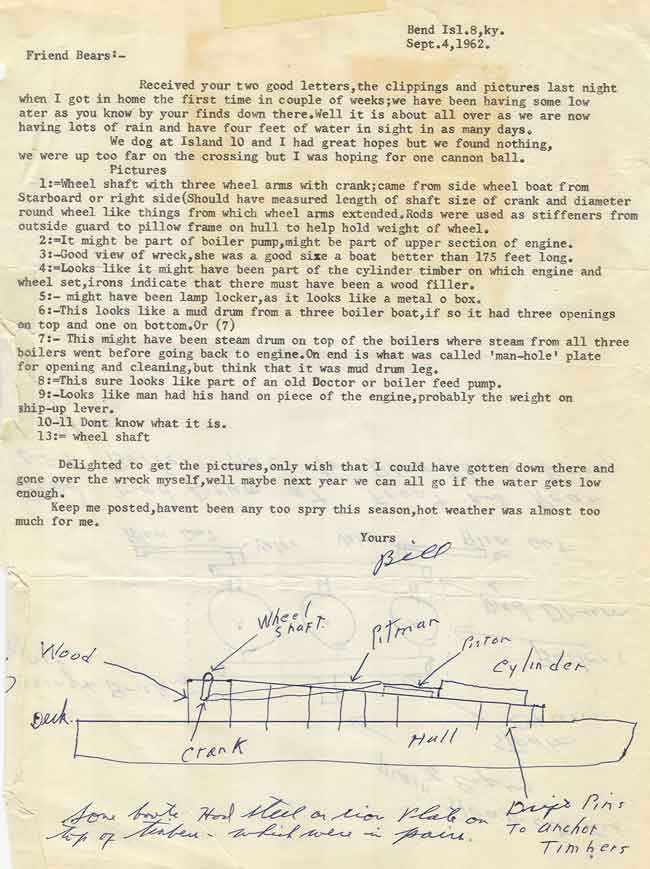 Bend Isl.8,ky.
Sept.4,1962.
Friend Bears:-
Received your two good letters,the clippings and pictures last night
when I got in home the first time in couple of weeks;we have been having some low
ater as you know by your finds down there.Well it is about all over as we are now
having lots of rain and have four feet of water in sight in as many days.
We dog at Island 10 and I had great hopes but we found nothing,
we were up too far on the crossing but I was hoping for one cannon ball.
Pictures
1:=Wheel shaft with three wheel arms with crank;came from side wheel boat from
Starboard or right side(Should have measured length of shaft size of crank and diameter
round wheel like things from which wheel arms extended.Rods were used as stiffeners from
outside guard to pillow frame on hull to help hold weight of wheel.
2:=It might be part of boiler pump,might be part of upper section of engine.
3:-Good view of wreck,she was a good size a boat better than 175 feet long.
4:=Looks like it might have been part of the cylinder timber on which engine and
wheel set,irons indicate that there must have been a wood filler.
5:- might have been lamp locker,as it looks like a metal o box.
6:-This looks like a mud drum from a three boiler boat,if so it had three openings
on top and one on bottom.Or (7)
7:- This might have been steam drum on top of the boilers where steam from all three
boilers went before going back to engine.On end is what was called 'man-hole' plate
for opening and cleaning,but think that it was mud drum leg.
8:=This sure looks like part of an old Doctor or boiler feed pump.
9:-Looks like man had his hand on piece of the engine,probably the weight on
ship-up lever.
10-11 Dont know what it is.
13:= wheel shaft
Delighted to get the pictures,only wish that I could have gotten down there and
gone over the wreck myself,well maybe next year we can all go if the water gets low
enough.
Keep me posted,havent been any too spry this season,hot weather was almost too
much for me.
Yours
Bill
Wheel
Shaft.
Pitman
Piston
Cylinder
Wood
Deck.
Crank
Hull
Some boats Had steel or iron Plate on
top of timbers - which were in pairs.
Drift Pins
To anchor
Timbers